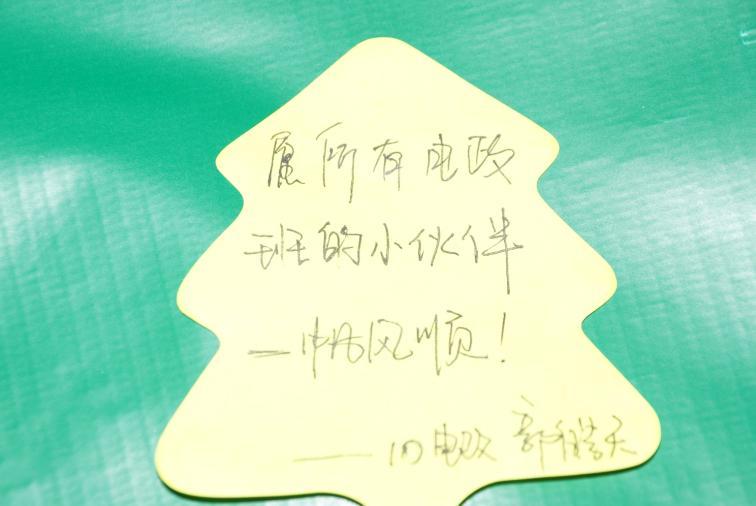 愿所有电政
班的小伙伴
一帆风顺！
——10电政 郭